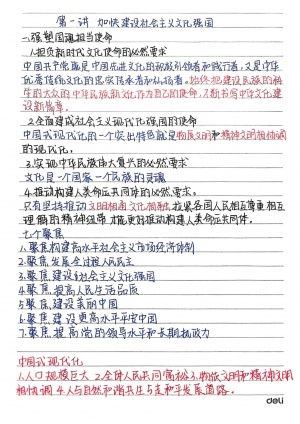 第一讲 加快建设社会主义文化强国
一、强塑国魂担当使命
1.担负新时代文化使命的必然要求
中国共产党既是中国先进文化的积极引领者和践行者,又是中华
优秀传统文化的忠实传承者和弘扬者。始终把建设民族的科学的
大众的中华民族新文化作为自己的使命,不断书写中华文化建
设新华章。
2.全面建成社会主义现代化强国的必然要求
中国式现代化的一个突出特色就是物质文明和精神文明相协调
的现代化。
3.实现中华民族伟大复兴的必然要求
文化是一个国家一个民族的灵魂
4.推动构建人类命运共同体的必然要求。
只有坚持推动文明相交文化相融,拉紧各国人民相互尊重相互
理解的精神纽带,才能更好推动构建人类命运共同体。
七个聚焦
1.聚焦构建高水平社会主义市场经济体制
2.聚焦发展全过程人民民主
3.聚焦建设社会主义文化强国
4.聚焦提高人民生活品质
5.聚焦建设美丽中国
6.聚焦建设更高水平平安中国
7.聚焦提高党的领导水平和长期执政力
中国式现代化
1.人口规模巨大 2.全体人民共同富裕 3.物质文明和精神文明
相协调 4.人与自然和谐共生 5.走和平发展道路。
deli